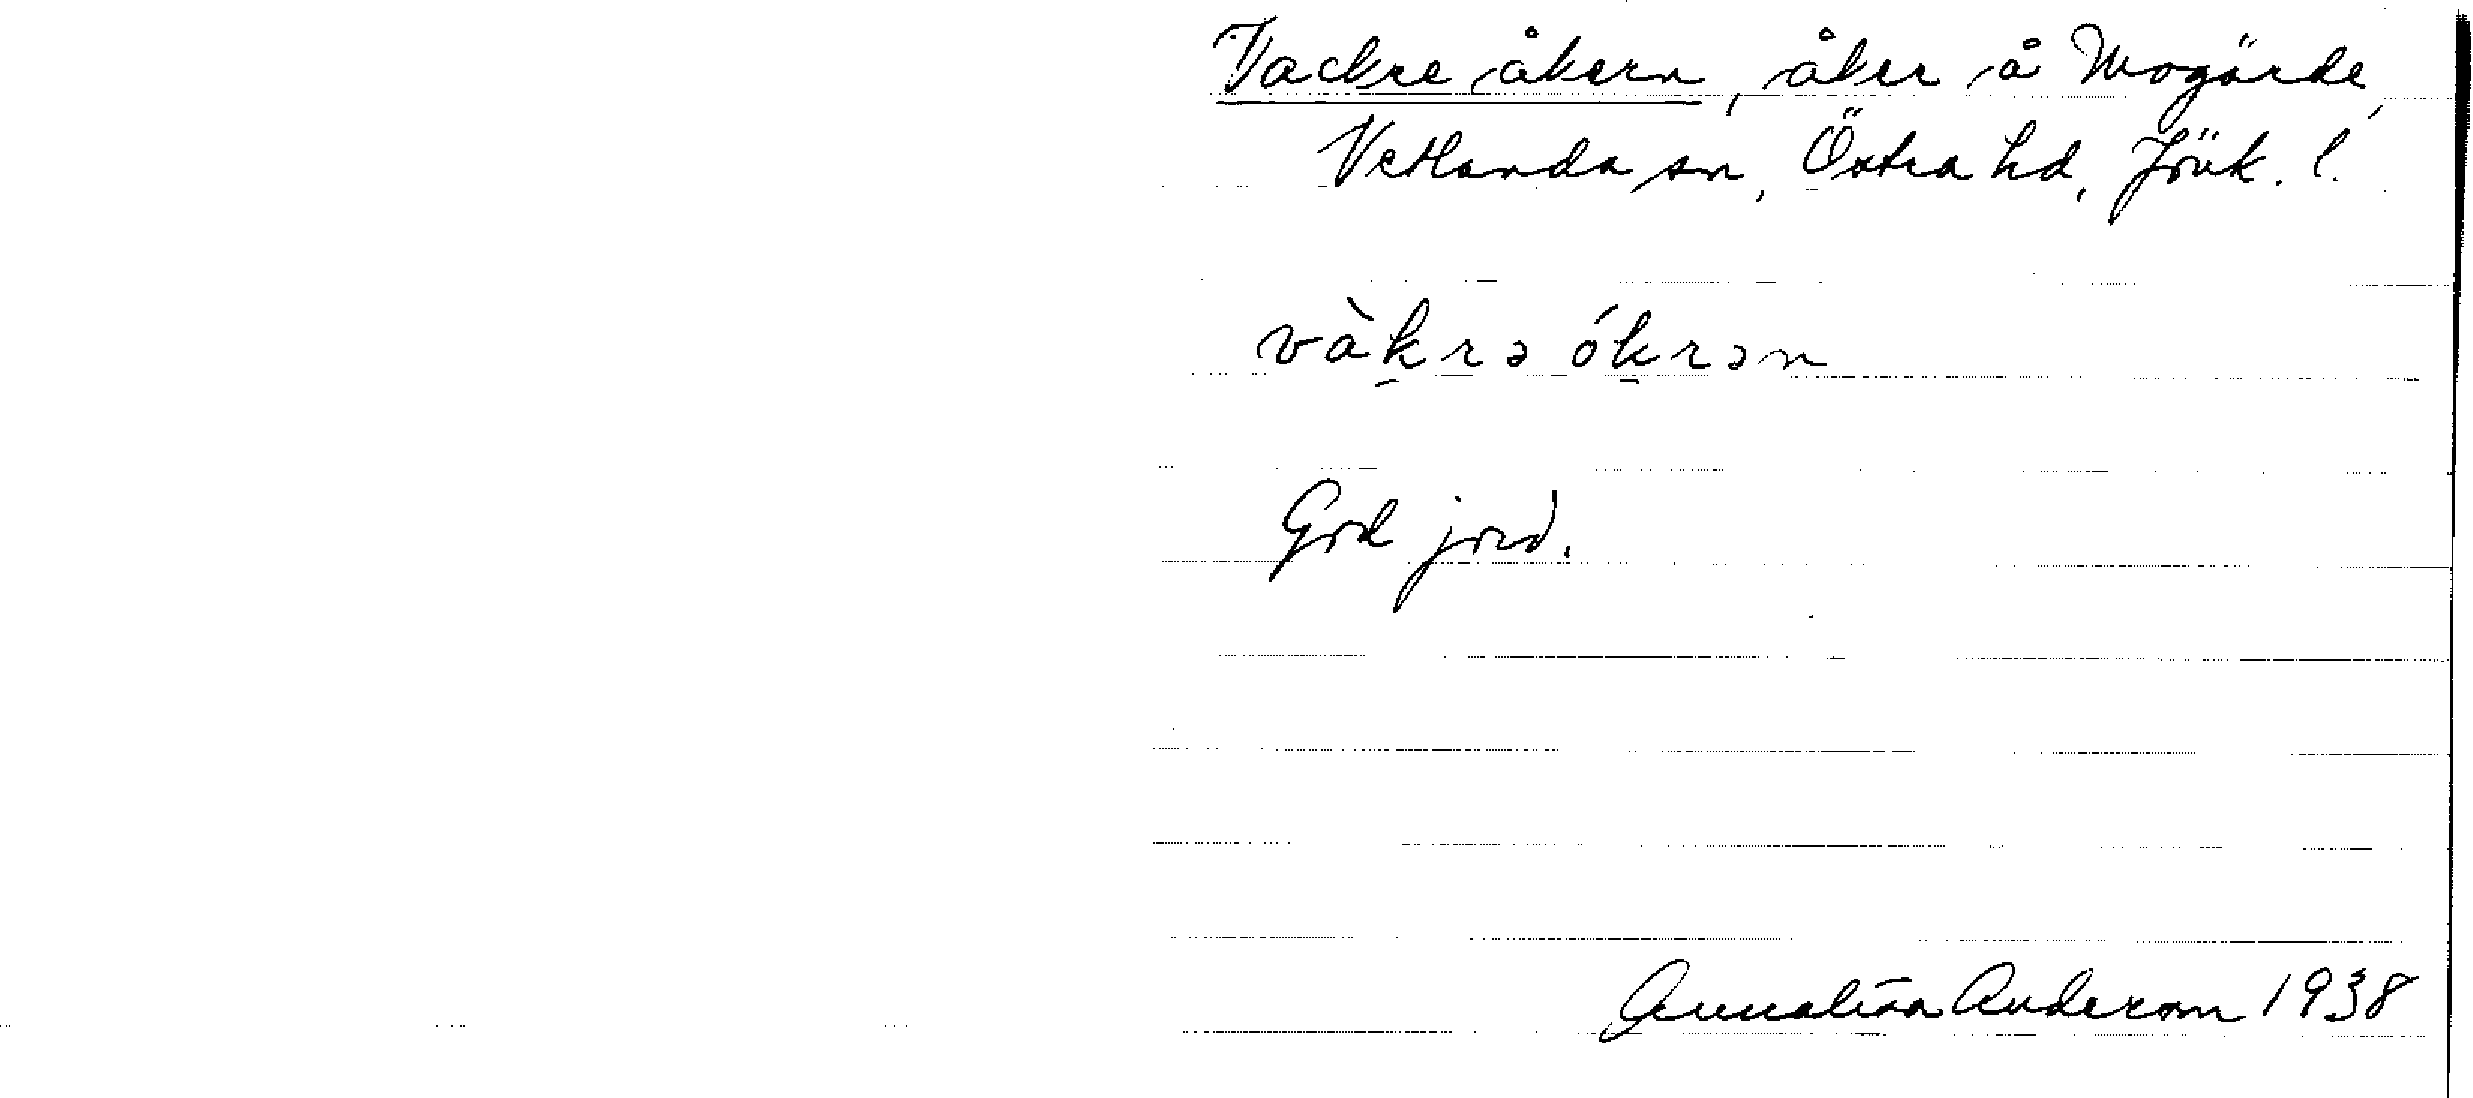 Vackre åkern, åker å Mogärde,
Vetlanda sn, Östra hd, Jönk. l.
vàk̠rə ók̠rən
God jord.
Annalisa Anderson 1938